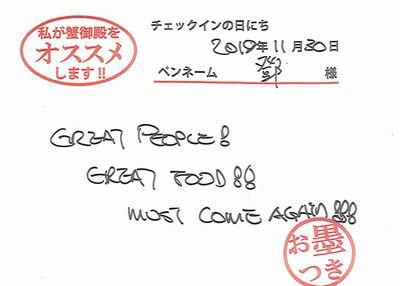 私が蟹御殿を
オススメ
します!!
チェックインの日にち
2019年11月30日
ペンネーム 様
GREAT PEOPLE!
GREAT FOOD!!
MUST COME AGAIN!!!
お墨
つき